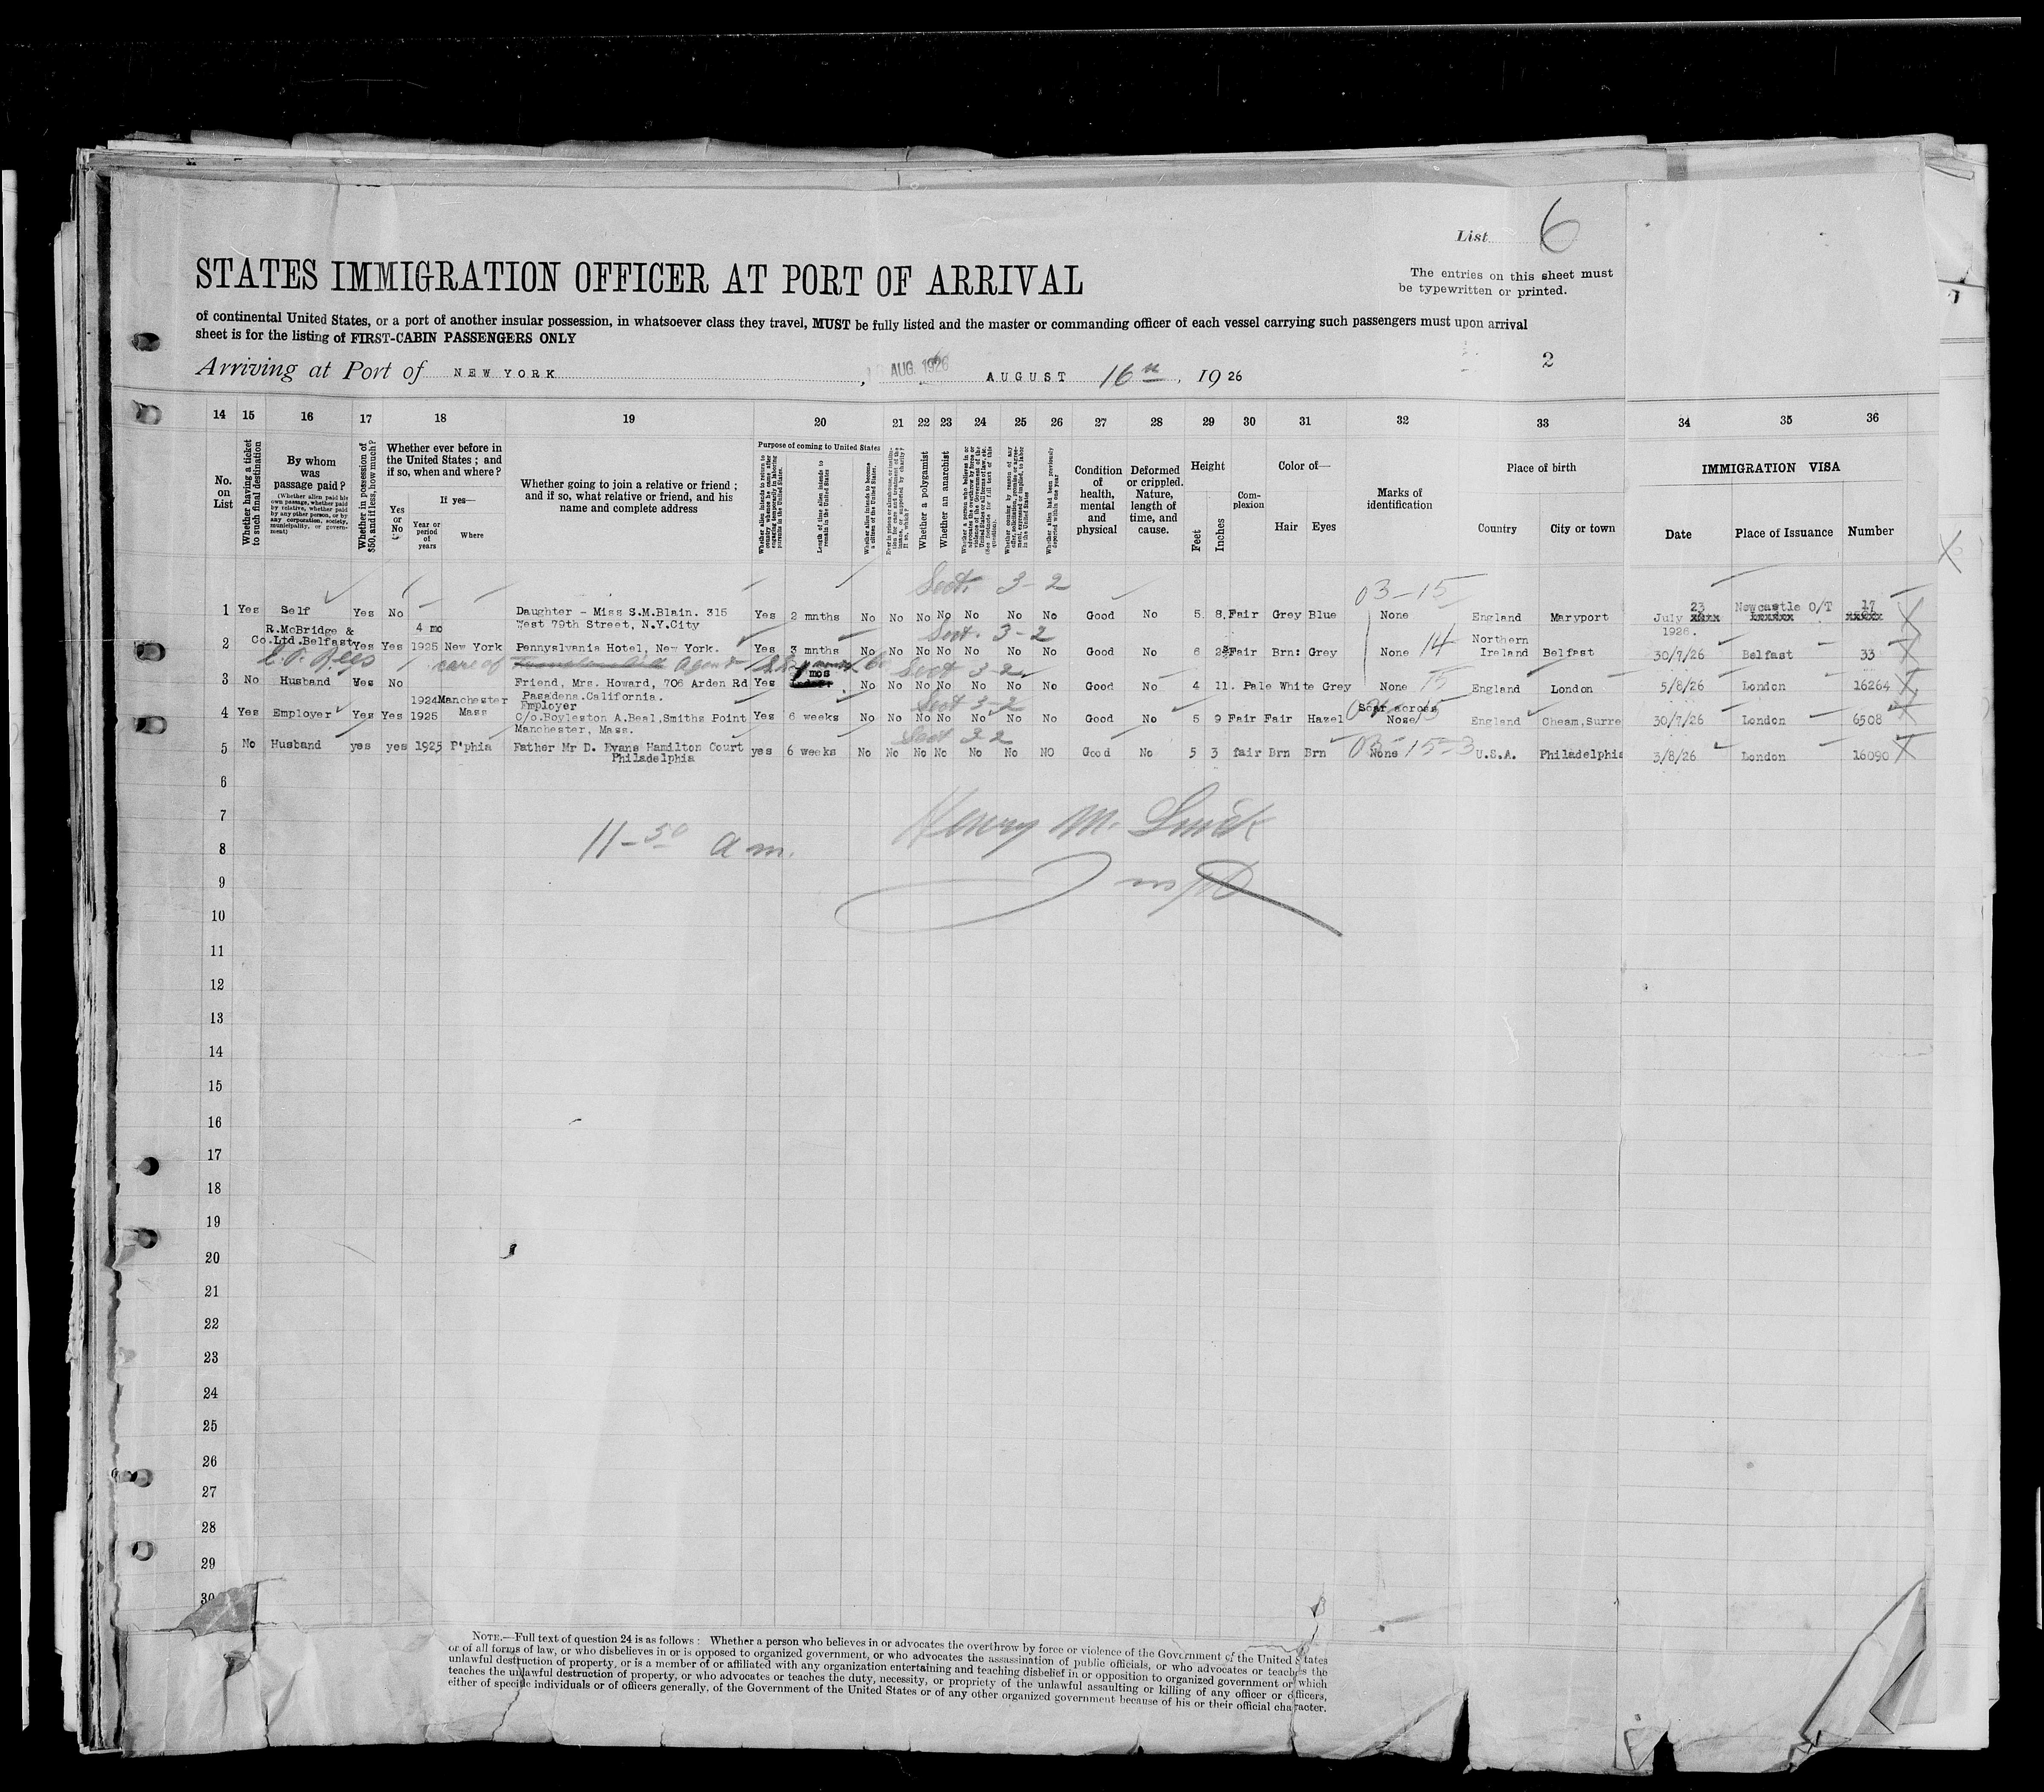 List 6
STATES IMMIGRATION OFFICER AT PORT OF ARRIVAL
The entries on this sheet must
be typewritten or printed.
of continental United States, or a port of another insular possession, in whatsoever class they travel, MUST be fully listed and the master or commanding officer of each vessel carrying such passengers must upon arrival
sheet is for the listing of FIRST-CABIN PASSENGERS ONLY
Arriving at Port of NEW YORK, AUG. 1926 AUGUST 16th, 1926
2
14 15 16 17 18 19 20 21 22 23 24 25 26 27 28 29 30 31 32 33 34 35 36
No. on List
Whether having a ticket to such final destination
By whom was passage paid?
(Whether alien paid his own passage, whether paid by relative, whether paid by any other person, or by any corporation, society, municipality, or government)
Whether in possession of $50, and if less, how much?
Whether ever before in the United States; and if so, when and where?
Yes or No
If yes—
Year or period of years
Where
Whether going to join a relative or friend; and if so, what relative or friend, and his name and complete address
Purpose of coming to United States
Length of time alien intends to remain in the United States
Whether alien intends to become a citizen of the United States.
Whether a polygamist
Whether an anarchist
Whether alien had been previously deported within one year
Condition of health, mental and physical
Deformed or crippled. Nature, length of time, and cause.
Height
Feet
Inches
Complexion
Color of—
Hair
Eyes
Marks of identification
Place of birth
Country
City or town
IMMIGRATION VISA
Date
Place of Issuance
Number
Sect. 3-2
03-15
1 Yes Self Yes No Daughter - Miss S.M.Blain. 315 Yes 2 mnths No No No No No No No Good No 5 8. Fair Grey Blue None England Maryport July 23 Newcastle O/T 17
West 79th Street, N.Y.City
1926.
R.McBridge & 4 mo Sect. 3-2 Northern
2 Co.Ltd.Belfast Yes Yes 1925 New York Pennyslvania Hotel, New York. Yes 3 mnths No No No No No No No Good No 6 2½ Fair Brn: Grey None 14 Ireland Belfast 30/7/26 Belfast 33
care of Agent
Sect 3-2
1 mos
3 No Husband Yes No Friend, Mrs. Howard, 706 Arden Rd Yes No No No No No No No Good No 4 11. Pale White Grey None 15 England London 5/8/26 London 16264
Pasadena.California.
1924 Manchester Employer Sect 3-2 Scar across
4 Yes Employer Yes Yes 1925 Mass C/o.Boyleston A.Beal,Smiths Point Yes 6 weeks No No No No No No No Good No 5 9 Fair Fair Hazel Nose England Cheam,Surre 30/7/26 London 6508
Manchester, Mass.
Sect 3 2
5 No Husband yes yes 1925 P'phia Father Mr D. Evans Hamilton Court yes 6 weeks No No No No No No NO Good No 5 3 fair Brn Brn None 15-3 U.S.A. Philadelphia 3/8/26 London 16090
Philadelphia
6
7
8
11-50 a m.
Henry M.
9
10
11
12
13
14
15
16
17
18
19
20
21
22
23
24
25
26
27
28
29
30
NOTE.—Full text of question 24 is as follows: Whether a person who believes in or advocates the overthrow by force or violence of the Government of the United States
or of all forms of law, or who disbelieves in or is opposed to organized government, or who advocates the assassination of public officials, or who advocates or teaches the
unlawful destruction of property, or is a member of or affiliated with any organization entertaining and teaching disbelief in or opposition to organized government or which
teaches the unlawful destruction of property, or who advocates or teaches the duty, necessity, or propriety of the unlawful assaulting or killing of any officer or officers,
either of specific individuals or of officers generally, of the Government of the United States or of any other organized government because of his or their official character.